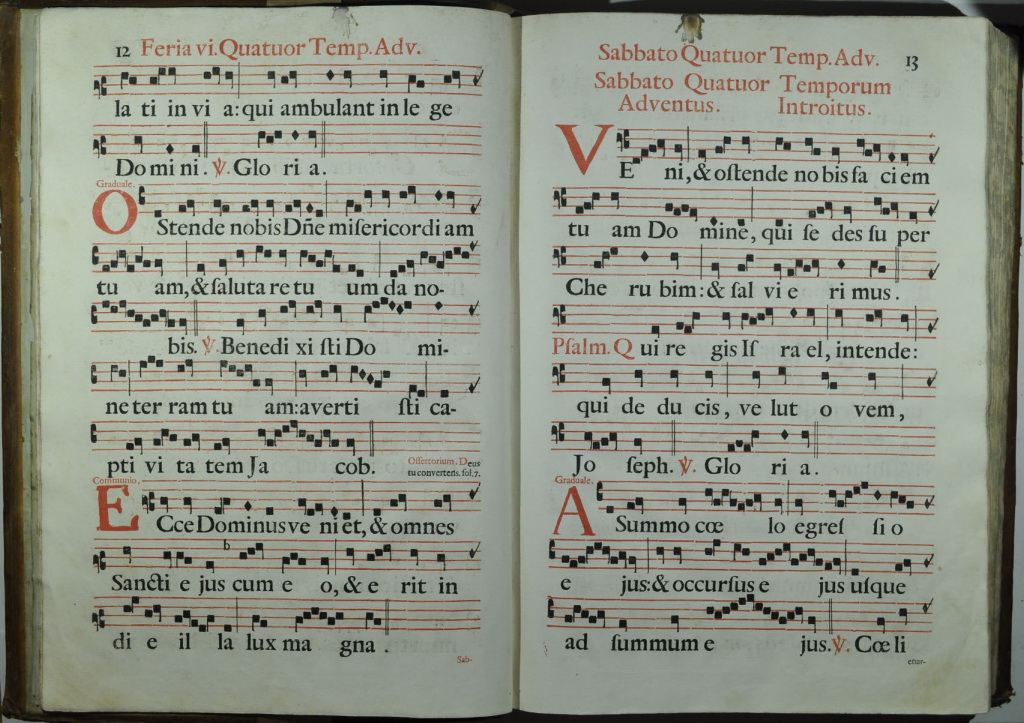 12 Feria vi. Quatuor Temp. Adv.
la ti in vi a: qui ambulant in le ge
Do mi ni. ℣. Glo ri a.
Graduale.
O Stende nobis Dñe miſericordi am
tu am, & ſaluta re tu um da no-
bis. ℣. Benedi xi ſti Do mi-
ne ter ram tu am: averti ſti ca-
pti vi ta tem Ja cob. Offertorium. Deus
tu convertens. fol. 7.
Communio.
E Cce Dominus ve ni et, & omnes
Sancti e jus cum e o, & e rit in
di e il la lux ma gna.
Sab-
Sabbato Quatuor Temp. Adv. 13
Sabbato Quatuor Temporum
Adventus. Introitus.
V E ni, & oſtende no bis fa ci em
tu am Do mine, qui ſe des ſu per
Che ru bim: & ſal vi e ri mus.
Pſalm. Q ui re gis Iſ ra el, intende:
qui de du cis, ve lut o vem,
Jo ſeph. ℣. Glo ri a.
Graduale.
A Summo cœ lo egreſ ſi o
e jus: & occurſus e jus uſque
ad ſummum e jus. ℣. Cœ li
enar-